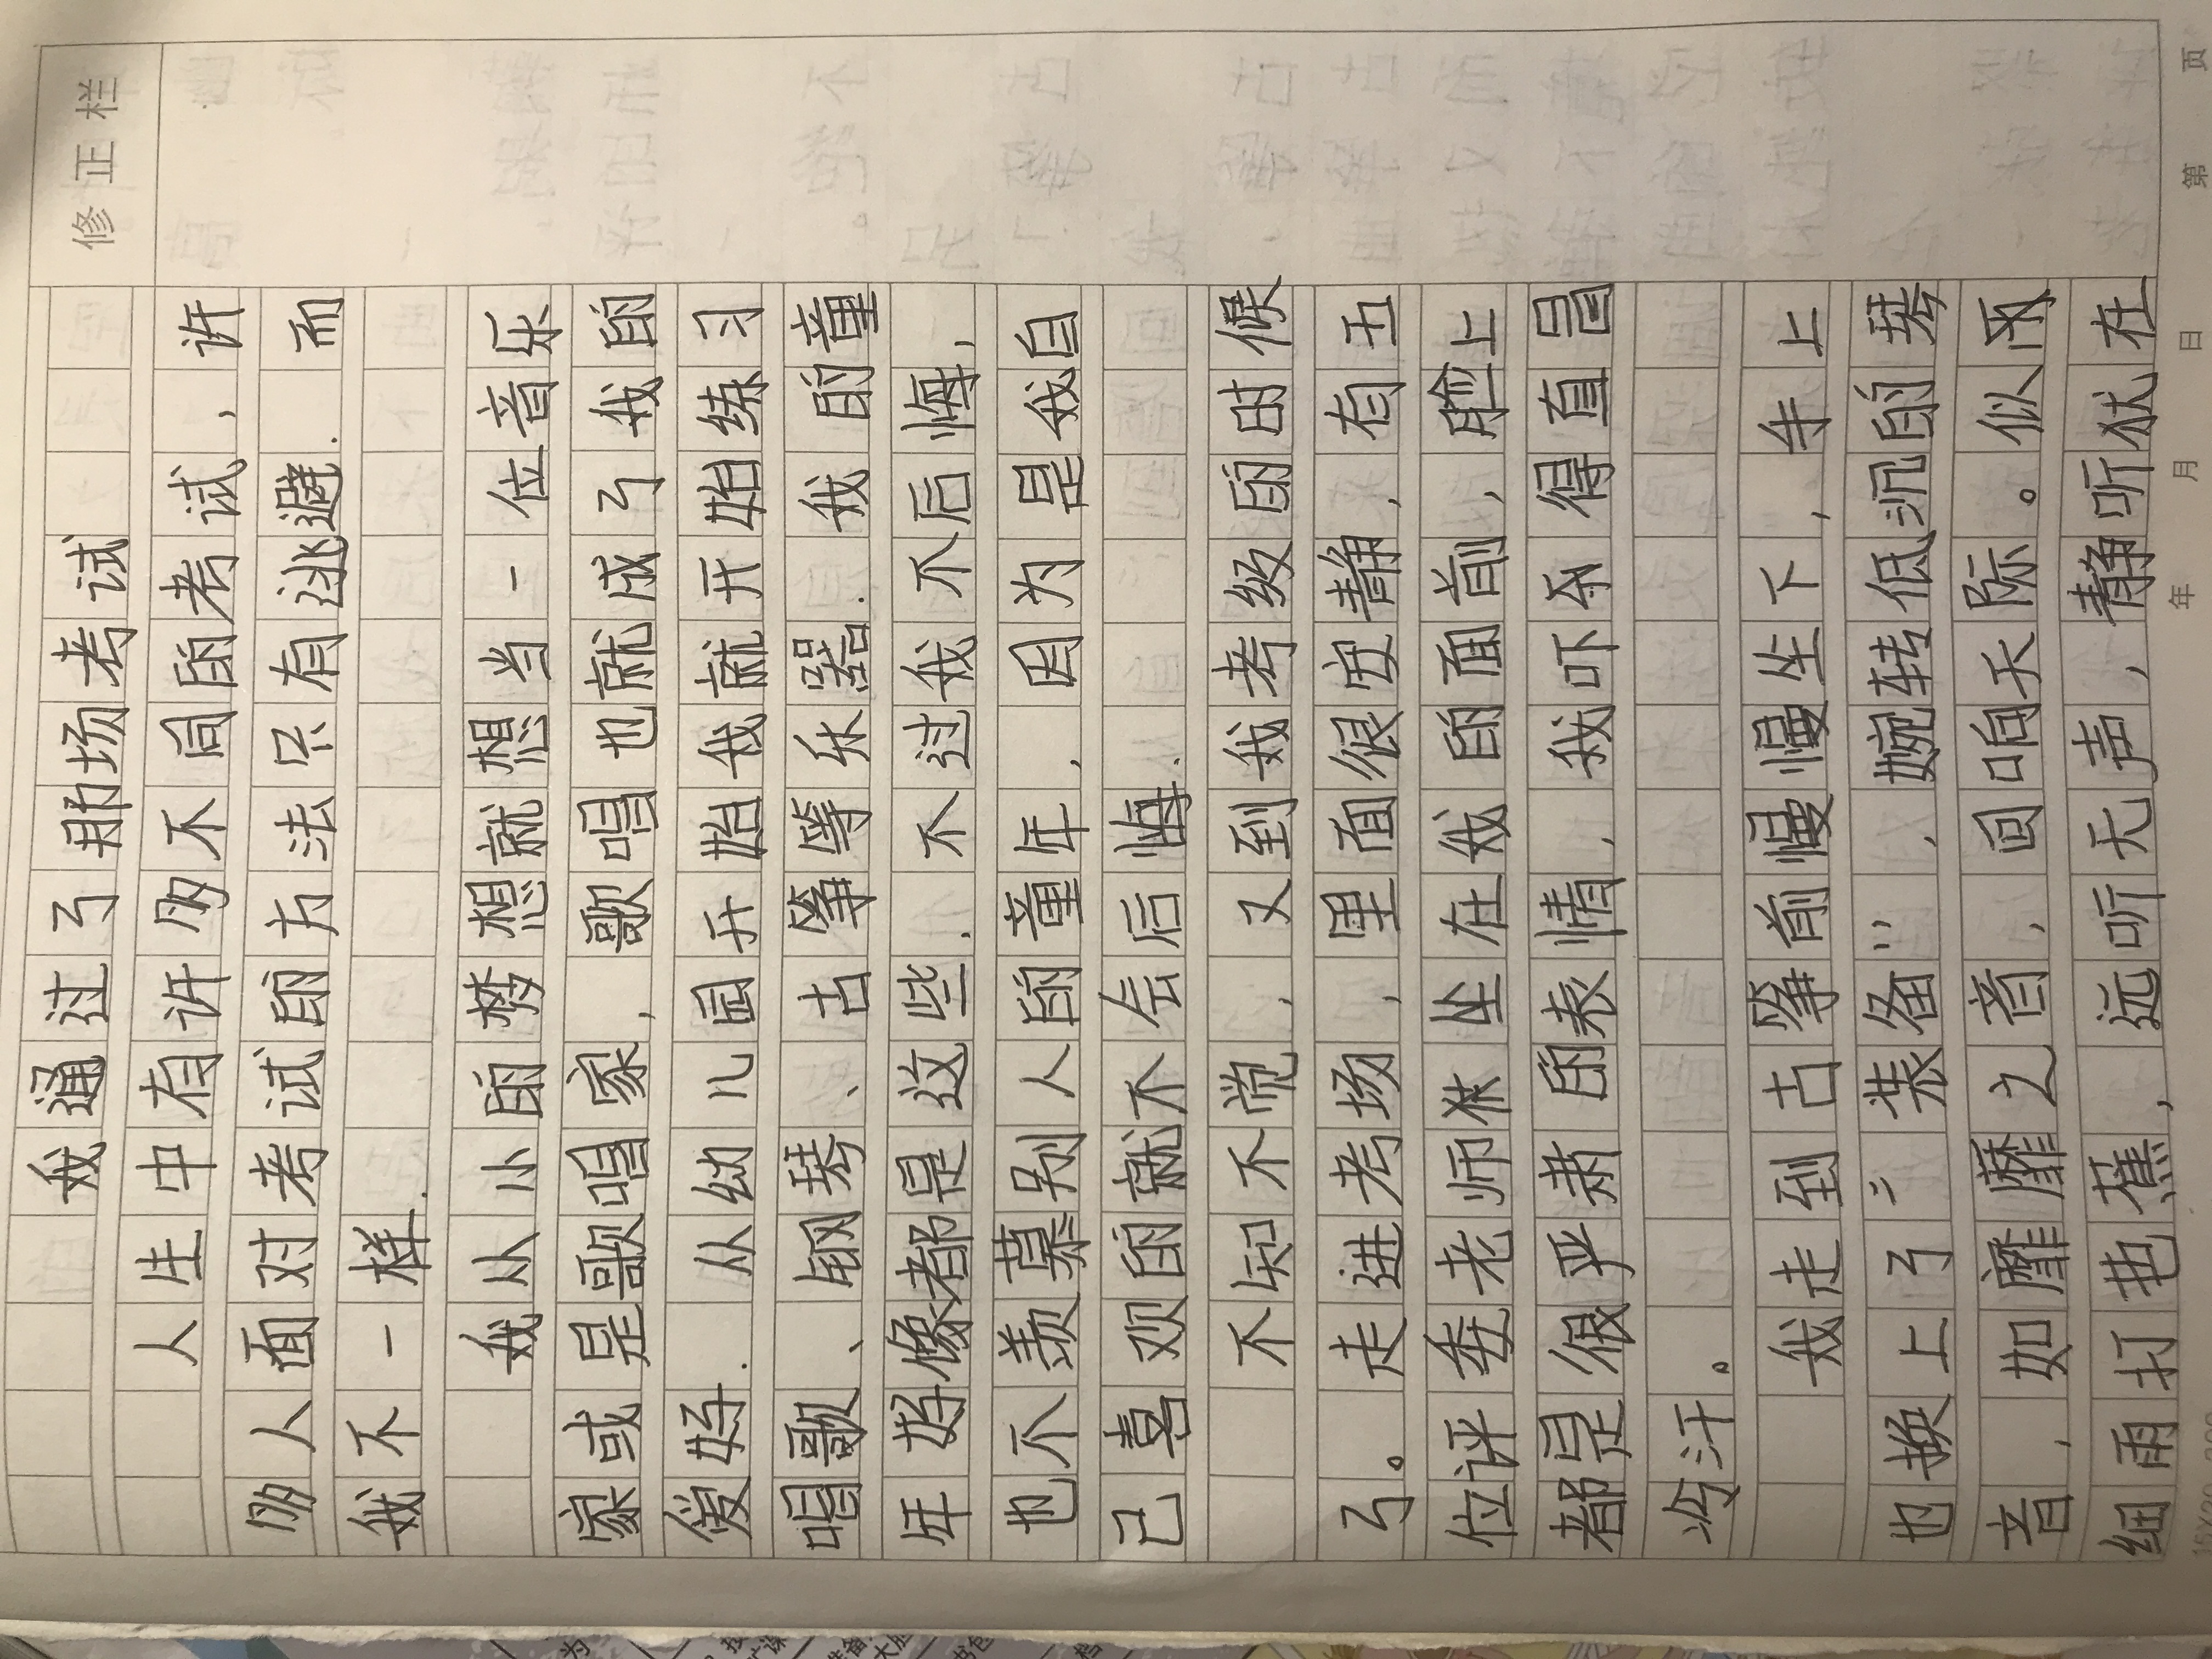 修正栏
我通过了那场考试
人生中有许多不同的考试，许
多人面对考试的方法只有逃避.而
我不一样.
我从小的梦想就想当一位音乐
家或是歌唱家，歌唱也就成了我的
爱好.从幼儿园开始我就开始练习
唱歌、钢琴、古筝等乐器.我的童
年好像都是这些.不过我不后悔，
也不羡慕别人的童年，因为是我自
己喜欢的就不会后悔.
不知不觉，又到我考级的时候
了。走进考场，里面很安静，有五
位评委老师就坐在我的面前，脸上
都是很严肃的表情，我吓个得直冒
冷汗。
我走到古筝前慢慢坐下，手上
也换上了"装备"，婉转低沉的琴
音，如靡靡之音，回响天际。似雨
细雨打芭蕉，远听无声，静听犹在
年 月 日 第 页